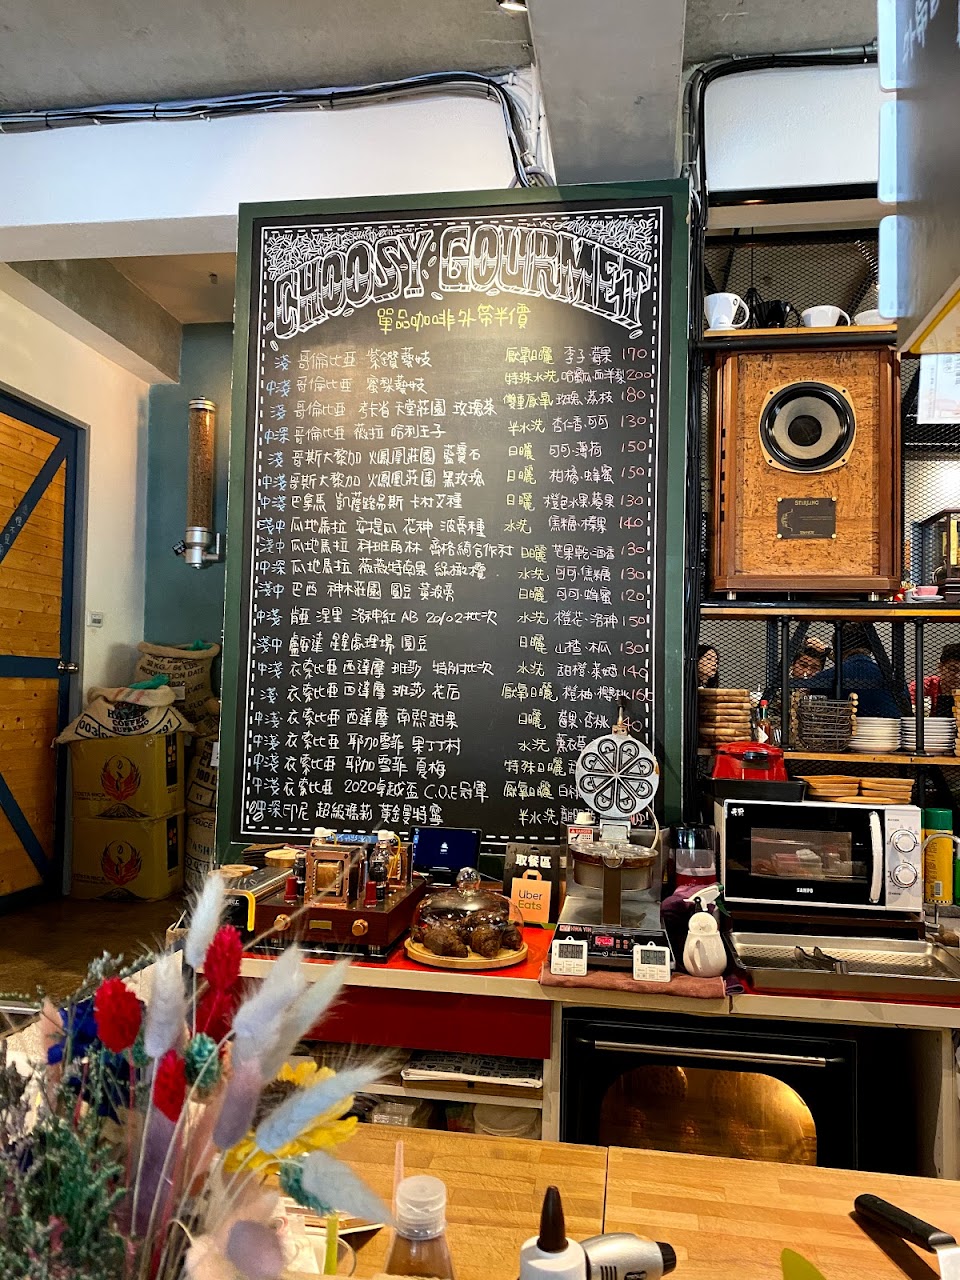 CHOOSY GOURMET
單品咖啡外帶半價
淺 哥倫比亞 紫鑽藝妓 厭氧日曬 李子·莓果 170
中淺 哥倫比亞 蜜梨藝妓 特殊水洗 哈蜜瓜·西洋梨 200
淺 哥倫比亞 天堂莊園 雙重厭氧 玫瑰·荔枝 180
中深 哥倫比亞 薇拉 哈利王子 半水洗 杏仁香·可可 130
淺 哥斯大黎加 火鳳凰莊園 藍寶石 日曬 可可·薄荷 150
中淺 哥斯大黎加 火鳳凰莊園 黑玫瑰 日曬 柑橘·蜂蜜 150
中淺 巴拿馬 凱薩路易斯 卡杜艾種 日曬 橙色水果·蘋果 130
淺中 瓜地馬拉 安提瓜 花神 波旁種 水洗 焦糖·榛果 140
淺中 瓜地馬拉 科班雨林 合作社 日曬 芒果乾·酒香 130
中深 瓜地馬拉 薇薇特南果 綠橄欖 水洗 可可·焦糖 130
淺中 巴西 神木莊園 圓豆 黃波旁 日曬 可可·蜂蜜 120
中淺 肯亞 涅里 洛神紅 AB 20/02批次 水洗 橙花·洛神 150
淺中 盧安達 處理場 圓豆 日曬 山楂·木瓜 130
中淺 衣索比亞 西達摩 班莎 特別批次 水洗 甜橙·茉莉 140
淺 衣索比亞 西達摩 班莎 花后 厭氧日曬 橙柚·櫻桃
中淺 衣索比亞 西達摩 南熙甜果 日曬 莓果·杏桃
中淺 衣索比亞 耶加雪菲 果丁丁村 水洗 薰衣草
中淺 衣索比亞 耶加雪菲 夏梅 特殊日曬
中淺 衣索比亞 2020卓越盃 C.O.E冠軍 厭氧日曬
中深 印尼 超級瑪莉 黃金曼特寧 半水洗
取餐區
Uber Eats
STERLING
SAMPO
HWA YIH